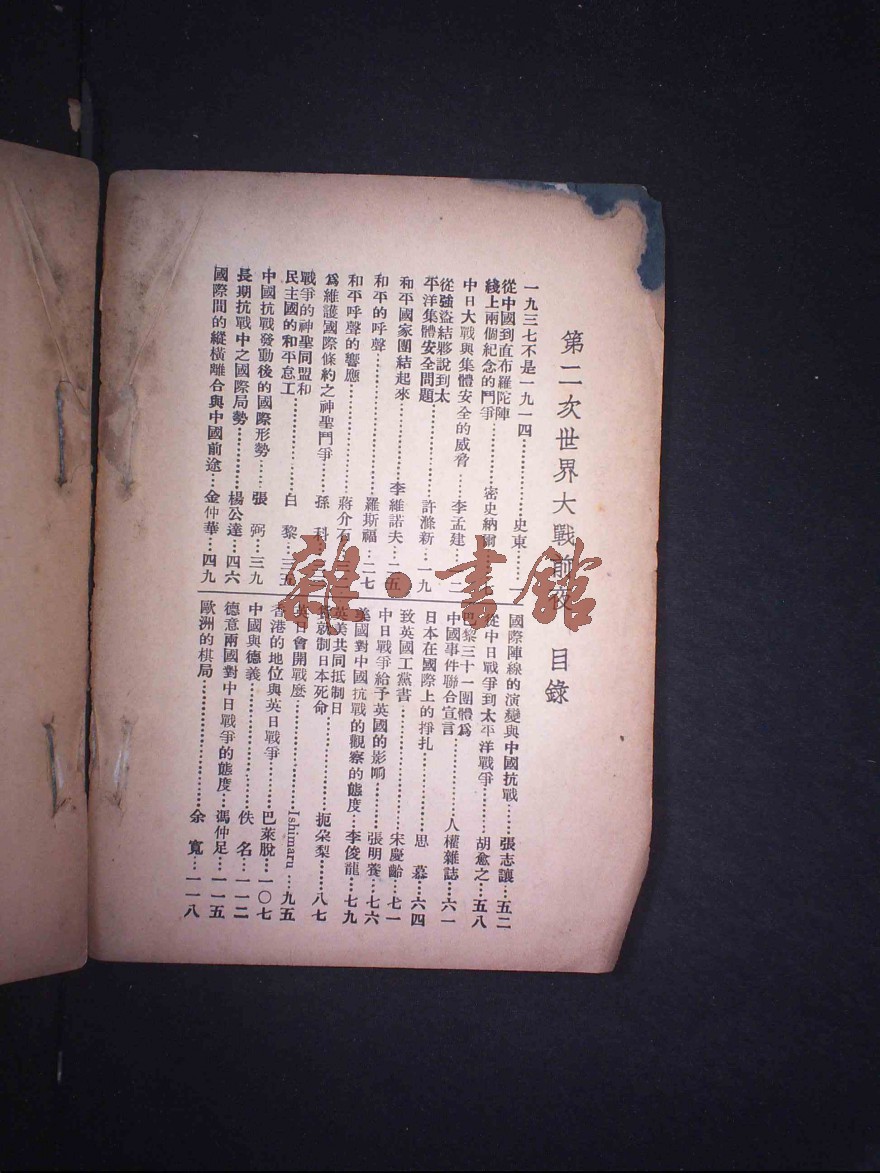 第二次世界大戰前夜 目錄
一九三七不是一九一四……………史東…一
從中國到直布羅陀陣
綫上兩個紀念的鬥爭……密史納爾
中日大戰與集體安全的威脅…李孟建…一二
從強盜結夥說到太
平洋集體安全問題…………許滌新…一九
和平國家團結起來…………李維諾夫…二五
和平的呼聲…………………羅斯福…二七
和平呼聲的響應……………蔣介石
爲維護國際條約之神聖鬥爭…孫 科
戰爭的神聖同盟和
民主國的和平怠工…………白 黎…三五
中國抗戰發動後的國際形勢……張 弼…三九
長期抗戰中之國際局勢………楊公達…四六
國際間的縱橫離合與中國前途…金仲華…四九
國際陣線的演變與中國抗戰……張志讓…五二
從中日戰爭到太平洋戰爭………胡愈之…五八
巴黎三十一團體爲
中國事件聯合宣言…………人權雜誌…六一
日本在國際上的掙扎…………思 慕…六四
致英國工黨書………………宋慶齡…七一
中日戰爭給予英國的影响……張明養…七六
美國對中國抗戰的觀察的態度…李俊龍…七九
英美共同抵制日
貨就制日本死命…………扼朵梨…八七
英日會開戰麽…………Ishimaru…九五
香港的地位與英日戰爭………巴萊脫…一〇七
中國與德義…………………佚 名…一一二
德意兩國對中日戰爭的態度…馮仲足…一一五
歐洲的棋局…………………余 寬…一一八
雜·書館